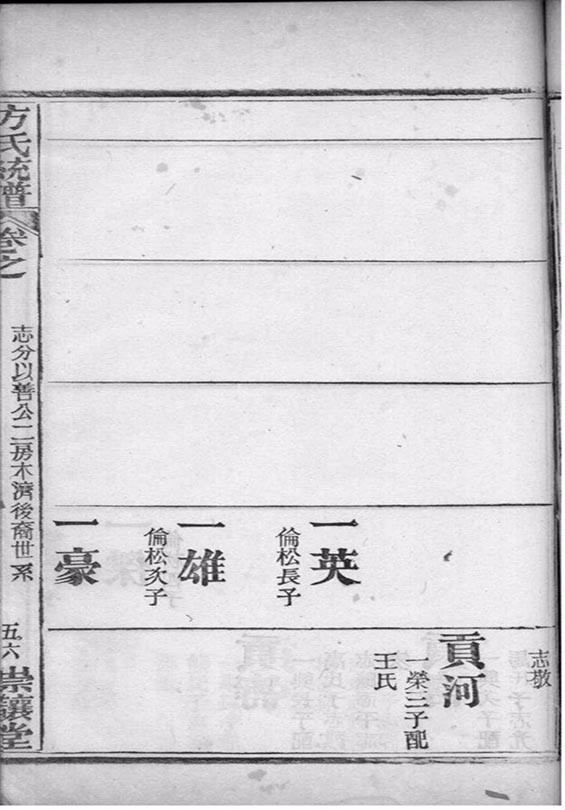 志敬
貢河
一榮三子配
王氏
一英
倫松長子
一雄
倫松次子
一豪
方氏統譜
卷之
志分以善公二房木濟後裔世系
五六
崇讓堂